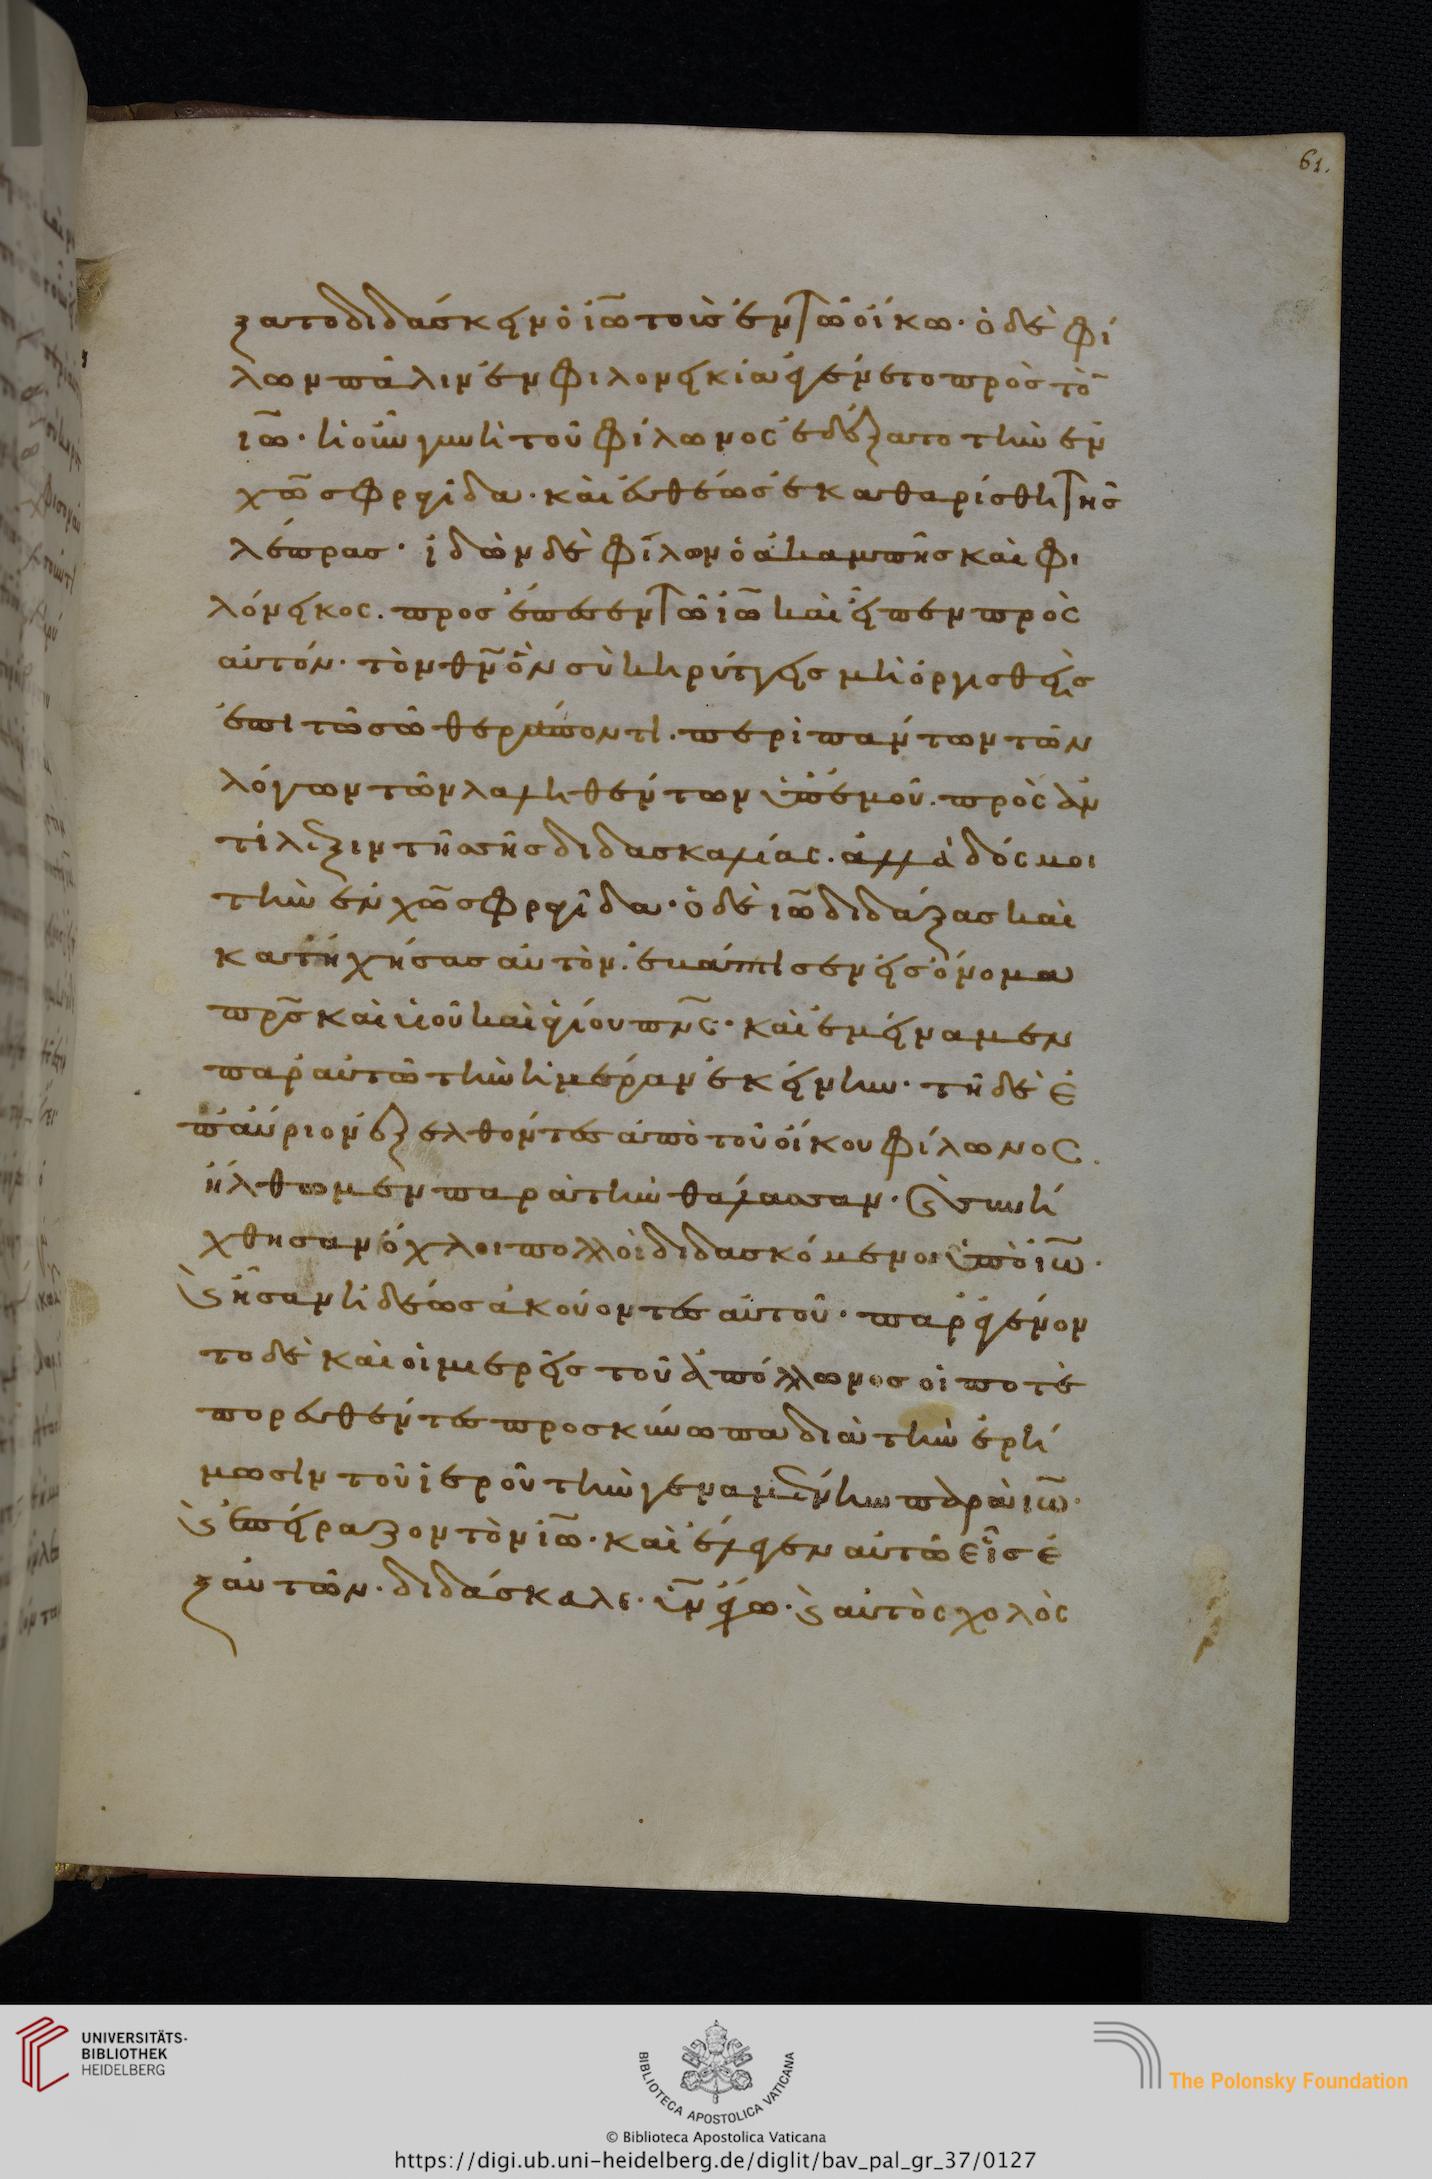 61.
ξατο διδάσκειν ὁ ἰω̅ τοὶσ ἐν τῶ οἴκω· ὁ δὲ Φί
λων πάλιν ἐν φιλονεικία ἐγένετο πρὸσ τὸ̅
ἰω̅· ἡ οὖν γυνὴ τοῦ Φίλωνος ἐδέξατο τὴν ἐν
χω̅ σφραγῖδα· καὶ ἐυθέωσ ἐκαθαρίσθη τῆσ
λέπρασ· ἰδὼν δὲ Φίλων ὁ ἀκαμπὴσ καὶ φι
λόνεικος. προσέπεσεν τῶ ἰω̅ καὶ εἶπεν πρὸς
αὐτόν· τὸν θν̅ ὃν σὺ κηρύττεισ μὴ ὀργισθεὶσ
ἐπι τῶ σῶ θεράποντι. περὶ πάντων τῶν
λόγων τῶν λαληθέντων ὑπ' ἐμοῦ. πρὸς ἀν
τίλεξιν τῆσ σῆσ διδασκαλίας. ἀλλὰ δός μοι
τὴν ἐν χω̅ σφραγῖδα· ὁ δὲ ἰω̅ διδάξασ καὶ
κατηχήσασ αὐτὸν. ἐβάπτισεν εἰσ ὄνομα
πρ̅σ καὶ υἱοῦ καὶ ἁγίου πν̅ς· καὶ ἐμείναμεν
παρ' αὐτῶ τὴν ἡμέραν ἐκείνην· τῆ δὲ ἐ
πάυριον ἐξελθόντεσ ἀπὸ τοῦ οἴκου Φίλωνος.
ἤλθωμεν παρὰ τὴν θάλασσαν· ϗ συνή
χθησαν ὄχλοι πολλοὶ διδασκόμενοι ὑπὸ ἰω̅·
ϗ ἦσαν ἡδέωσ ἀκούοντεσ αὐτοῦ· παρεγένον
το δὲ καὶ οἱ ἱερεῖσ τοῦ ἀπόλλωνοσ οἱ ποτὲ
πορευθέντεσ προσ κύνωπα διὰ τὴν ἐρή
μωσιν τοῦ ἱεροῦ τὴν γεναμένην παρὰ ἰω̅·
ϗ ἐπείραζον τὸν ἰω̅· καὶ ἔλεγεν αὐτῶ εἷσ ἐ
ξ αὐτῶν· διδάσκαλε· υν̅ ἔχω· ϗ αὐτὸς χολὸς
UNIVERSITÄTS-
BIBLIOTHEK
HEIDELBERG
BIBLIOTECA APOSTOLICA VATICANA
The Polonsky Foundation
© Biblioteca Apostolica Vaticana
https://digi.ub.uni-heidelberg.de/diglit/bav_pal_gr_37/0127